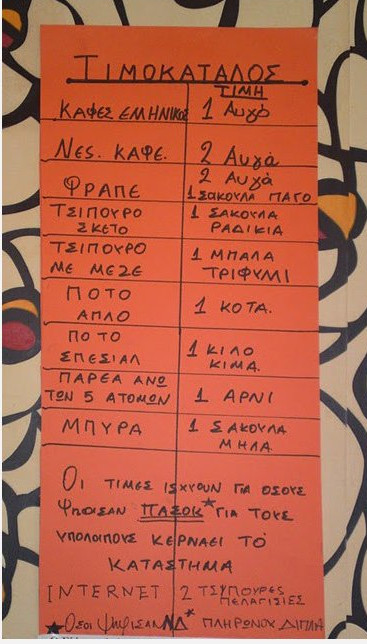 ΤΙΜΟΚΑΤΑΛΟΣ
ΤΙΜΗ
ΚΑΦΕΣ ΕΛΛΗΝΙΚΟΣ 1 Αυγό
ΝΕΣ. ΚΑΦΕ. 2 Αυγά
ΦΡΑΠΕ 2 Αυγά
1 ΣΑΚΟΥΛΑ ΠΑΓΟ
ΤΣΙΠΟΥΡΟ 1 ΣΑΚΟΥΛΑ
ΣΚΕΤΟ ΡΑΔΙΚΙΑ
ΤΣΙΠΟΥΡΟ 1 ΜΠΑΛΑ
ΜΕ ΜΕΖΕ ΤΡΙΦΥΛΛΙ
ΠΟΤΟ
ΑΠΛΟ 1 ΚΟΤΑ.
ΠΟΤΟ 1 ΚΙΛΟ
ΣΠΕΣΙΑΛ ΚΙΜΑ.
ΠΑΡΕΑ ΑΝΩ
ΤΩΝ 5 ΑΤΟΜΩΝ 1 ΑΡΝΙ
ΜΠΥΡΑ 1 ΣΑΚΟΥΛΑ
ΜΗΛΑ.
ΟΙ ΤΙΜΕΣ ΙΣΧΥΟΥΝ ΓΙΑ ΟΣΟΥΣ
ΨΗΦΙΣΑΝ ΠΑΣΟΚ* ΓΙΑ ΤΟΥΣ
ΥΠΟΛΟΙΠΟΥΣ ΚΕΡΝΑΕΙ ΤΟ
ΚΑΤΑΣΤΗΜΑ
INTERNET 2 ΤΣΥΠΟΥΡΕΣ
ΠΕΛΑΓΙΣΙΕΣ
★ΟΣΟΙ ΨΗΦΙΣΑΝ ΝΔ* ΠΛΗΡΩΝΟΥΝ ΔΙΠΛΑ